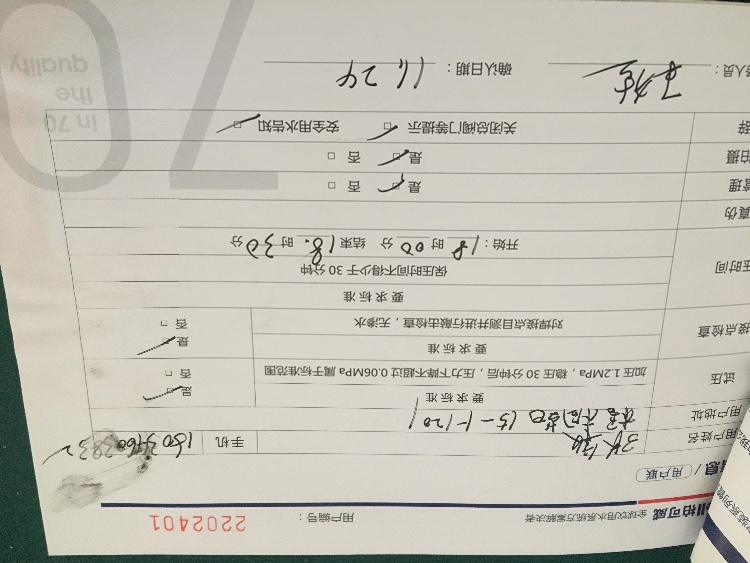 柏可威 全球饮用水系统方案解决者 用户编号： 2202401
信息 /（用户联）
用户姓名 手机
用户地址 15-1-1201
试压 要求标准 是
加压1.2MPa，稳压30分钟后，压力下降不超过0.06MPa属于标准范围 否
接点检查 要求标准 是
对焊接点目测并进行敲击检查，无渗水 否
要求标准
压时间 保压时间不得少于30分钟
开始：18时00分 结束18.时30分
真伪
管理 是 否
拍摄 是 否
关闭总阀门等提示 安全用水告知
人员： 确认日期：11.24
In 70
the
quality
70